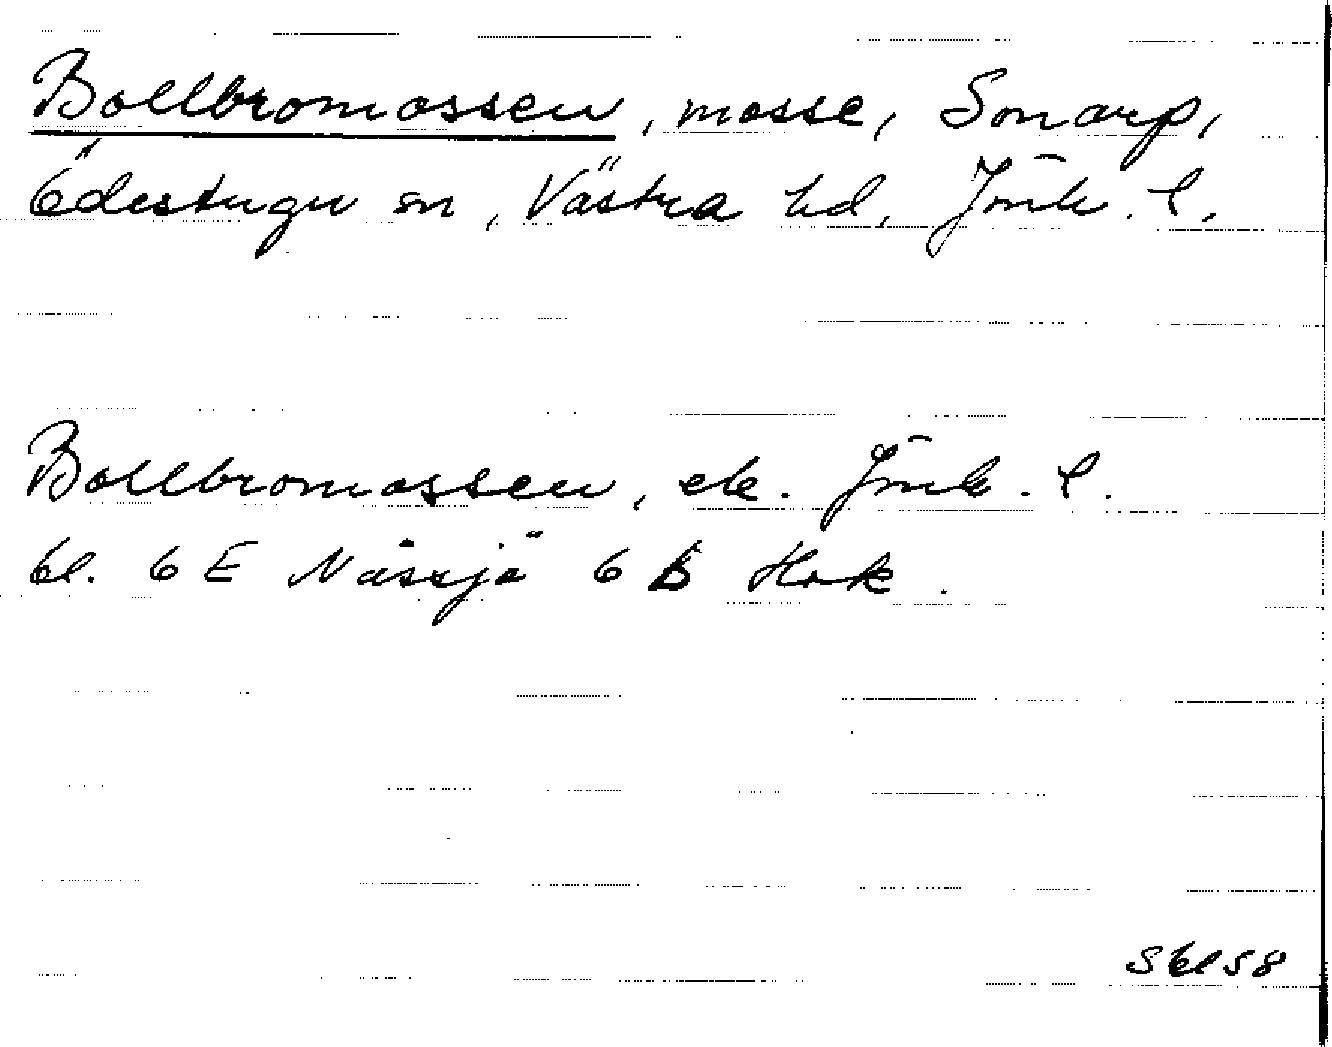 Bollbromossen, mosse, Sonarp,
Ödestugu sn, Västra hd, Jönk. l.
Bollbromossen, ek. Jönk. l.
bl. 6 E Nässjö 6 b Hok.
Sbl58